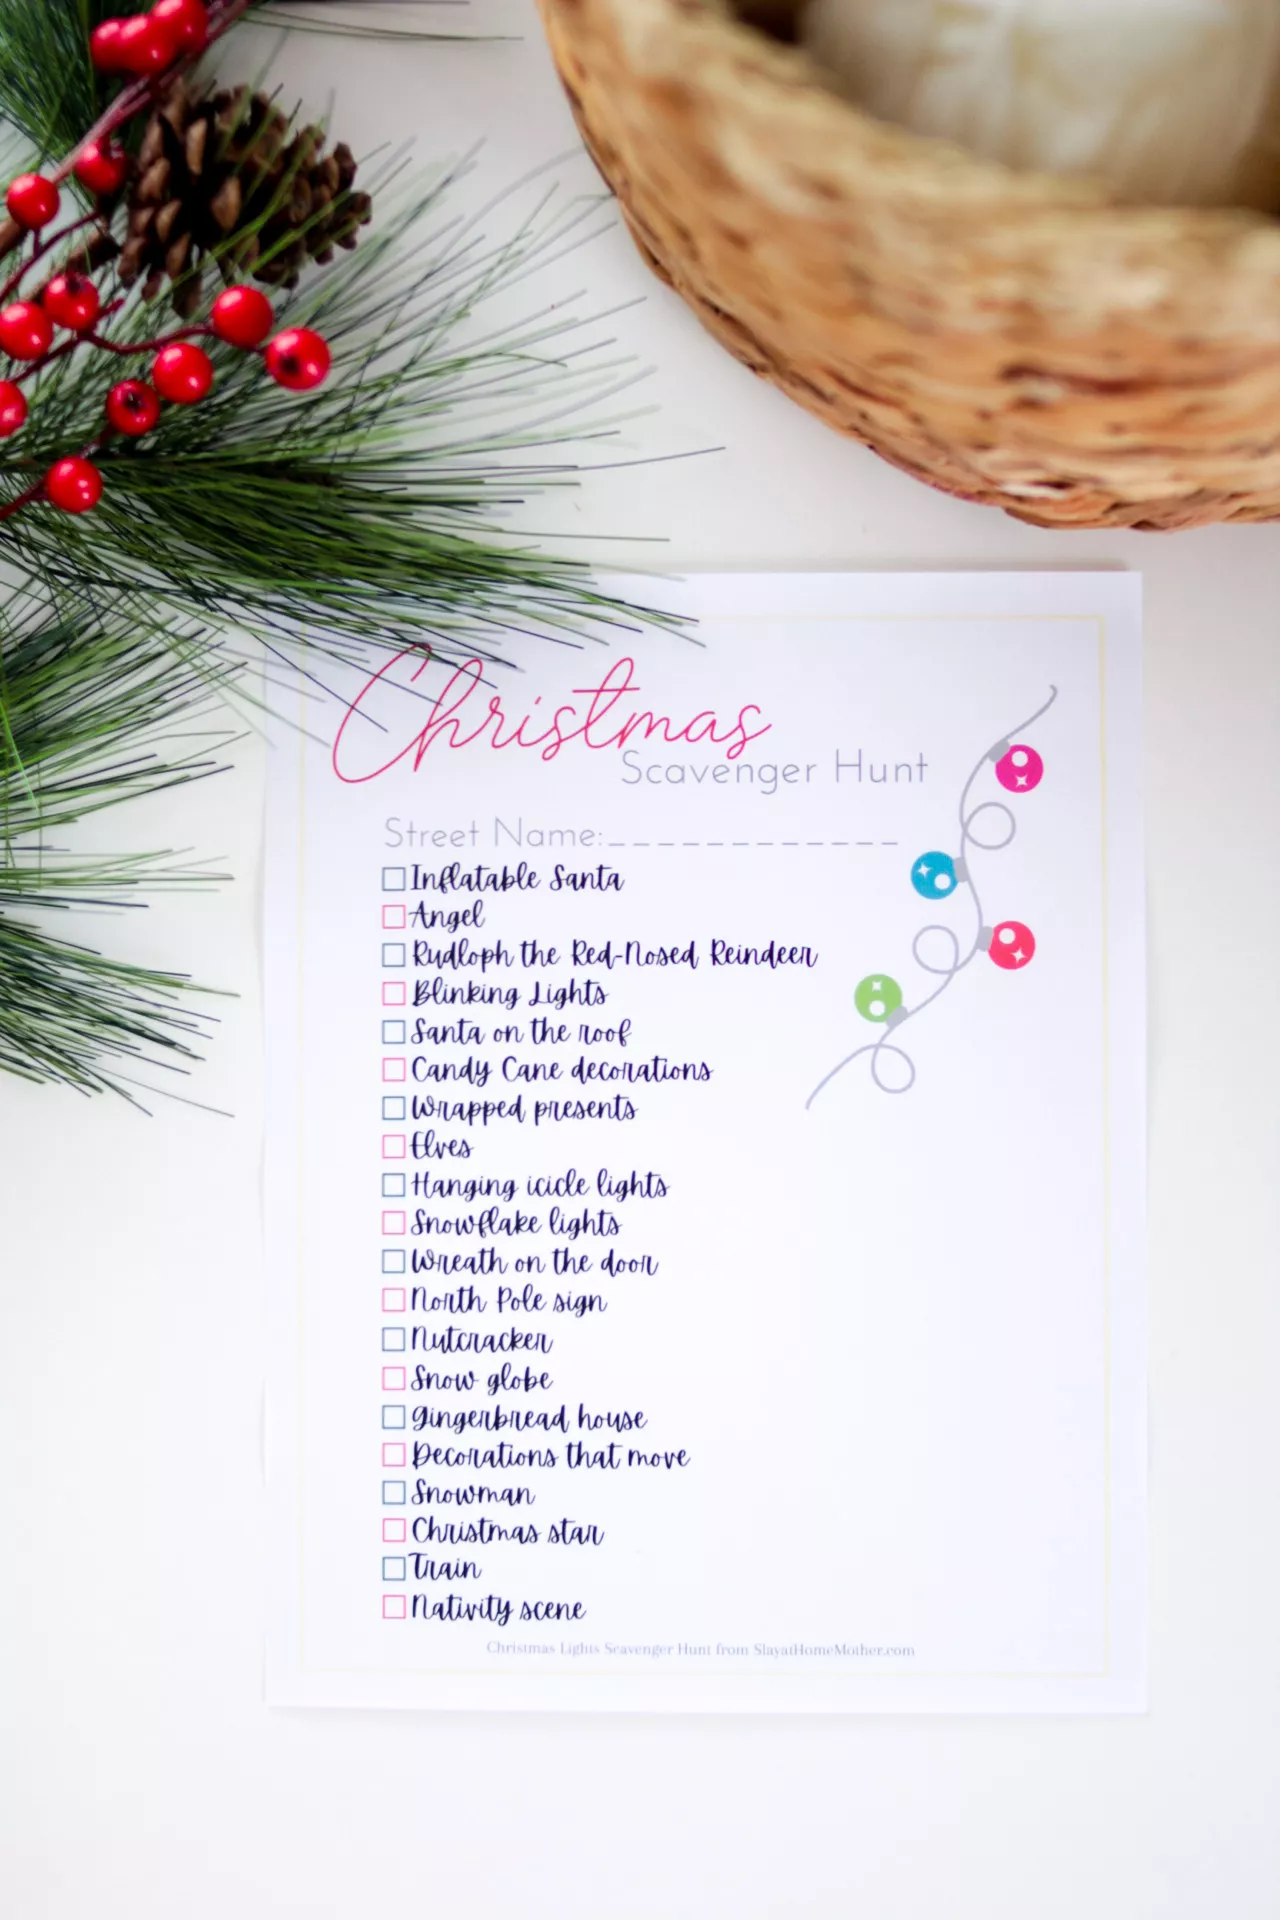 Christmas
Scavenger Hunt
Street Name:____________
Inflatable Santa
Angel
Rudloph the Red-Nosed Reindeer
Blinking Lights
Santa on the roof
Candy Cane decorations
Wrapped presents
Elves
Hanging icicle lights
Snowflake lights
Wreath on the door
North Pole sign
Nutcracker
Snow globe
Gingerbread house
Decorations that move
Snowman
Christmas star
Train
Nativity scene
Christmas Lights Scavenger Hunt from SlayatHomeMother.com